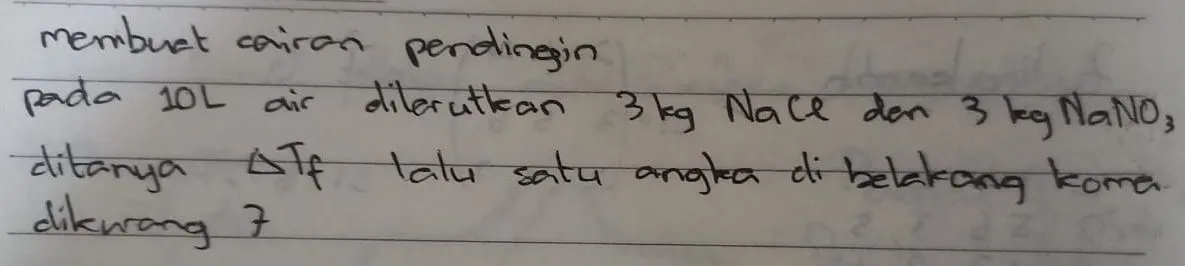 membuat cairan pendingin
pada 10L air dilarutkan 3 kg NaCl dan 3 kg NaNO₃
ditanya ΔTf lalu satu angka di belakang koma
dikurang 7